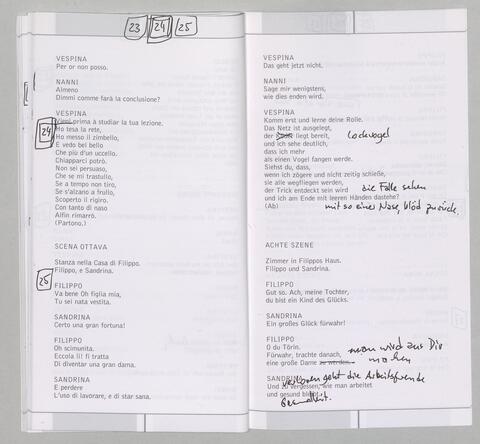 23 24 25
VESPINA
Per or non posso.
NANNI
Almeno
Dimmi comme farà la conclusione?
VESPINA
Vieni prima à studiar la tua lezione.
24
Ho tesa la rete,
Ho messo il zimbello,
E vedo bel bello
Che più d'un uccello.
Chiapparci potrò.
Non sei persuaso,
Che se mi trastullo,
Se a tempo non tiro,
Se s'alzano a frullo,
Scoperto il rigiro.
Con tanto di naso
Alfin rimarrò.
(Partono.)
SCENA OTTAVA
Stanza nella Casa di Filippo.
Filippo, e Sandrina.
25
FILIPPO
Va bene Oh figlia mia,
Tu sei nata vestita.
SANDRINA
Certo una gran fortuna!
FILIPPO
Oh scimunita.
Eccola lì! fi tratta
Di diventar una gran dama.
SANDRINA
E perdere
L'uso di lavorare, e di star sana.
VESPINA
Das geht jetzt nicht.
NANNI
Sage mir wenigstens,
wie dies enden wird.
VESPINA
Komm erst und lerne deine Rolle.
Das Netz ist ausgelegt,
der liegt bereit, Lockvogel
und ich sehe deutlich,
dass ich mehr
als einen Vogel fangen werde.
Siehst du, dass,
wenn ich zögere und nicht zeitig schieße,
sie alle wegfliegen werden,
der Trick entdeckt sein wird die Falle sehen
und ich am Ende mit leeren Händen dastehe?
(Ab) mit so einer Nase, blöd zurück.
ACHTE SZENE
Zimmer in Filippos Haus.
Filippo und Sandrina.
FILIPPO
Gut so. Ach, meine Tochter,
du bist ein Kind des Glücks.
SANDRINA
Ein großes Glück fürwahr!
FILIPPO
O du Törin.
Fürwahr, trachte danach, man wird aus Dir
eine große Dame zu werden. machen
SANDRINA
verloren geht die Arbeitsfreude
Und zu vergessen, wie man arbeitet
und gesund bleibt.
Gesundheit.